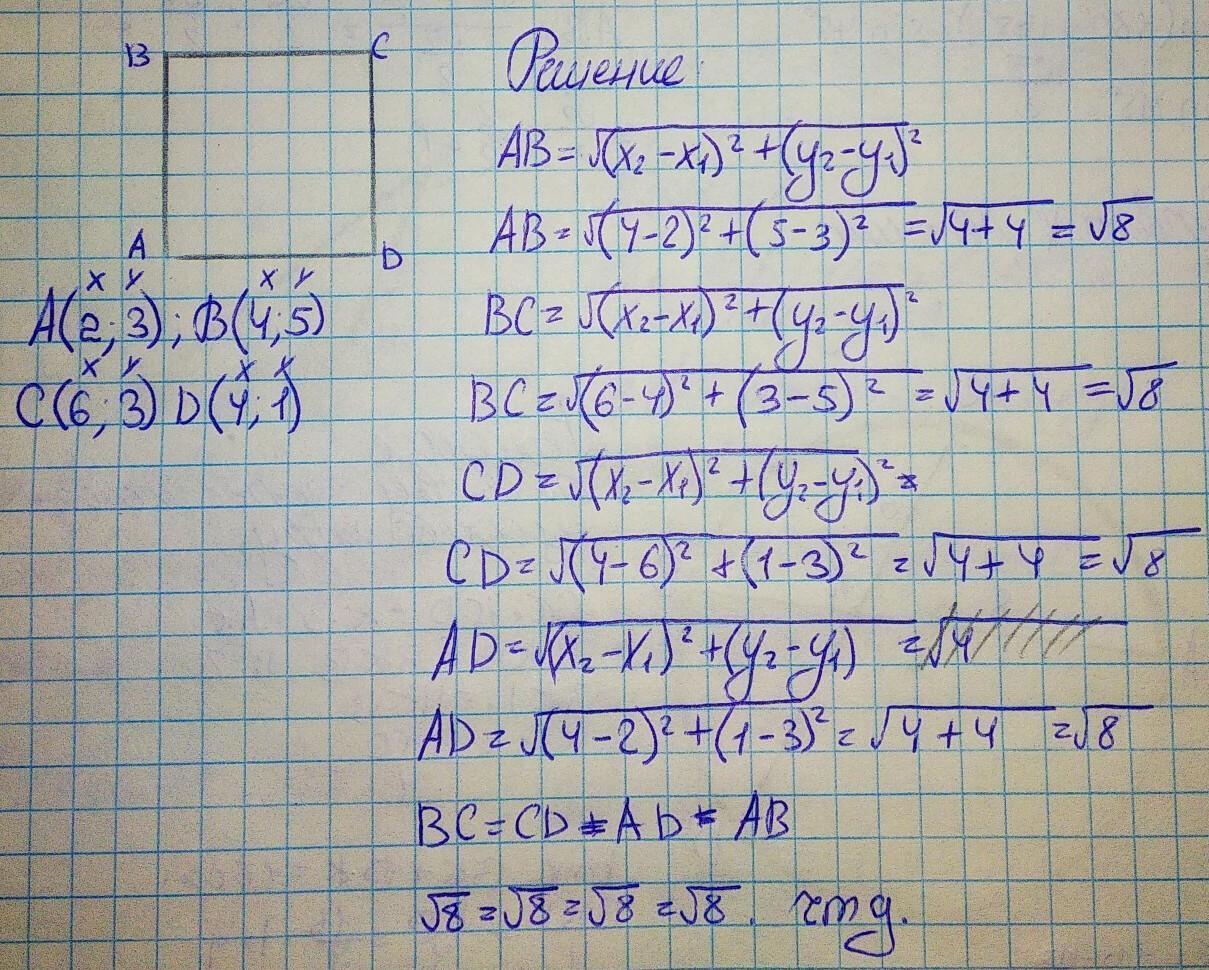 B C
A D
x y x y
A(2; 3); B(4; 5)
x y x y
C(6; 3) D(4; 1)
Решение
AB = √(x₂ - x₁)² + (y₂ - y₁)²
AB = √(4-2)² + (5-3)² = √4+4 = √8
BC = √(x₂ - x₁)² + (y₂ - y₁)²
BC = √(6-4)² + (3-5)² = √4+4 = √8
CD = √(x₂ - x₁)² + (y₂ - y₁)² =
CD = √(4-6)² + (1-3)² = √4+4 = √8
AD = √(x₂ - x₁)² + (y₂ - y₁) = √4
AD = √(4-2)² + (1-3)² = √4+4 = √8
BC = CD = AD = AB
√8 = √8 = √8 = √8. чтд.